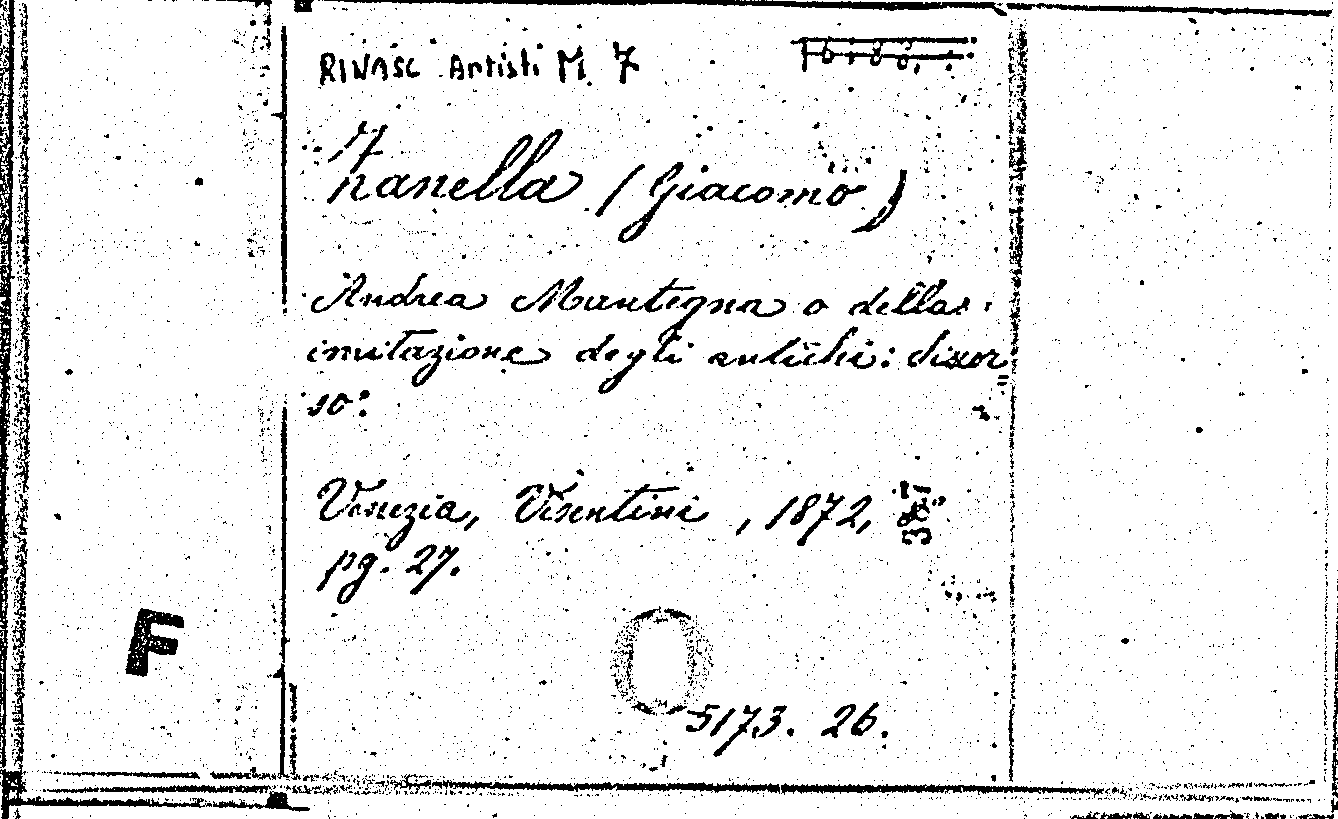 RINASC Artisti M. 7
Zanella (Giacomo)
Andrea Mantegna o della
imitazione degli antichi: discor
so:
Venezia, Visentini, 1872,
pg. 27.
F
O
5173. 26.